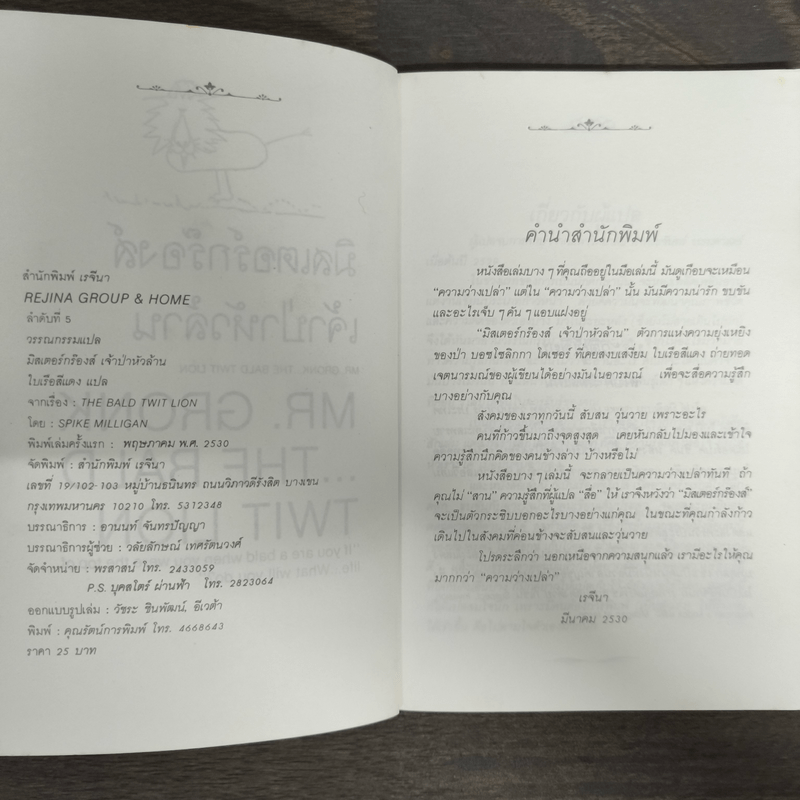 สำนักพิมพ์ เรจีนา
REJINA GROUP & HOME
ลำดับที่ 5
วรรณกรรมแปล
มิสเตอร์กร๊องส์ เจ้าป่าหัวล้าน
ใบเรือสีแดง แปล
จากเรื่อง : THE BALD TWIT LION
โดย : SPIKE MILLIGAN
พิมพ์เล่มครั้งแรก : พฤษภาคม พ.ศ. 2530
จัดพิมพ์ : สำนักพิมพ์ เรจีนา
เลขที่ 19/102-103 หมู่บ้านธนินทร ถนนวิภาวดีรังสิต บางเขน
กรุงเทพมหานคร 10210 โทร. 5312348
บรรณาธิการ : อานนท์ จันทรปัญญา
บรรณาธิการผู้ช่วย : วลัยลักษณ์ เทศรัตนวงศ์
จัดจำหน่าย : พรสาสน์ โทร. 2433059
P.S. บุคสโตร์ ผ่านฟ้า โทร. 2823064
ออกแบบรูปเล่ม : วัชระ ชินพัฒน์, อีเวต้า
พิมพ์ : คุณรัตน์การพิมพ์ โทร. 4668643
ราคา 25 บาท
คำนำสำนักพิมพ์
หนังสือเล่มบาง ๆ ที่คุณถืออยู่ในมือเล่มนี้ มันดูเกือบจะเหมือน
“ความว่างเปล่า” แต่ใน “ความว่างเปล่า” นั้น มันมีความน่ารัก ขบขัน
และอะไรเจ็บ ๆ คัน ๆ แอบแฝงอยู่
“มิสเตอร์กร๊องส์ เจ้าป่าหัวล้าน” ตัวการแห่งความยุ่งเหยิง
ของป่า บอซโซลิกกา โดเซอร์ ที่เคยสงบเสงี่ยม ใบเรือสีแดง ถ่ายทอด
เจตนารมณ์ของผู้เขียนได้อย่างมันในอารมณ์ เพื่อจะสื่อความรู้สึก
บางอย่างกับคุณ
สังคมของเราทุกวันนี้ สับสน วุ่นวาย เพราะอะไร
คนที่ก้าวขึ้นมาถึงจุดสูงสุด เคยหันกลับไปมองและเข้าใจ
ความรู้สึกนึกคิดของคนข้างล่าง บ้างหรือไม่
หนังสือบาง ๆ เล่มนี้ จะกลายเป็นความว่างเปล่าทันที ถ้า
คุณไม่ “สาน” ความรู้สึกที่ผู้แปล “สื่อ” ให้ เราจึงหวังว่า “มิสเตอร์กร๊องส์”
จะเป็นตัวกระซิบบอกอะไรบางอย่างแก่คุณ ในขณะที่คุณกำลังก้าว
เดินไปในสังคมที่ค่อนข้างจะสับสนและวุ่นวาย
โปรดระลึกว่า นอกเหนือจากความสนุกแล้ว เรามีอะไรให้คุณ
มากกว่า “ความว่างเปล่า”
เรจีนา
มีนาคม 2530